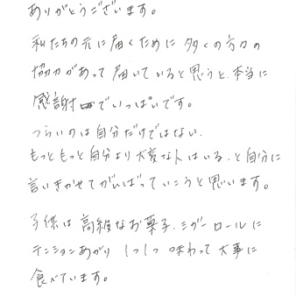 ありがとうございます。
私たちの元に届くために多くの方々の
協力があって届いていると思うと、本当に
感謝でいっぱいです。
つらいのは自分だけではない、
もっともっと自分より大変な人はいる、と自分に
言いきかせてがんばっていこうと思います。
子供は高級なお菓子、シガーロールに
テンションあがり 1つ1つ味わって大事に
食べています。